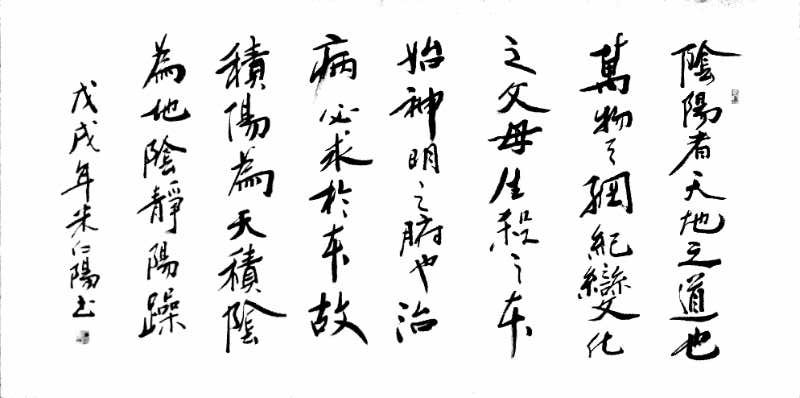 陰陽者天地之道也
萬物之綱紀變化
之父母生殺之本
始神明之府也治
病必求於本故
積陽為天積陰
為地陰靜陽躁
戊戌年米仁陽書